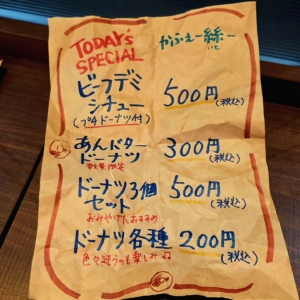 TODAY's
SPECIAL
かふぇー絲ー
いと
ビーフデミ
シチュー
(プチドーナツ付)
500円
(税込)
あんバター
ドーナツ
数量限定
300円
(税込)
ドーナツ3個
セット
おみやげにおすすめ
500円
(税込)
ドーナツ各種
200円
(税込)
色々違うのも楽しみ